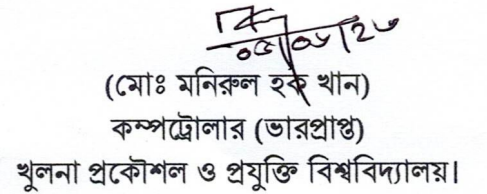 (মোঃ মনিরুল হক খান)
কম্পট্রোলার (ভারপ্রাপ্ত)
খুলনা প্রকৌশল ও প্রযুক্তি বিশ্ববিদ্যালয়।